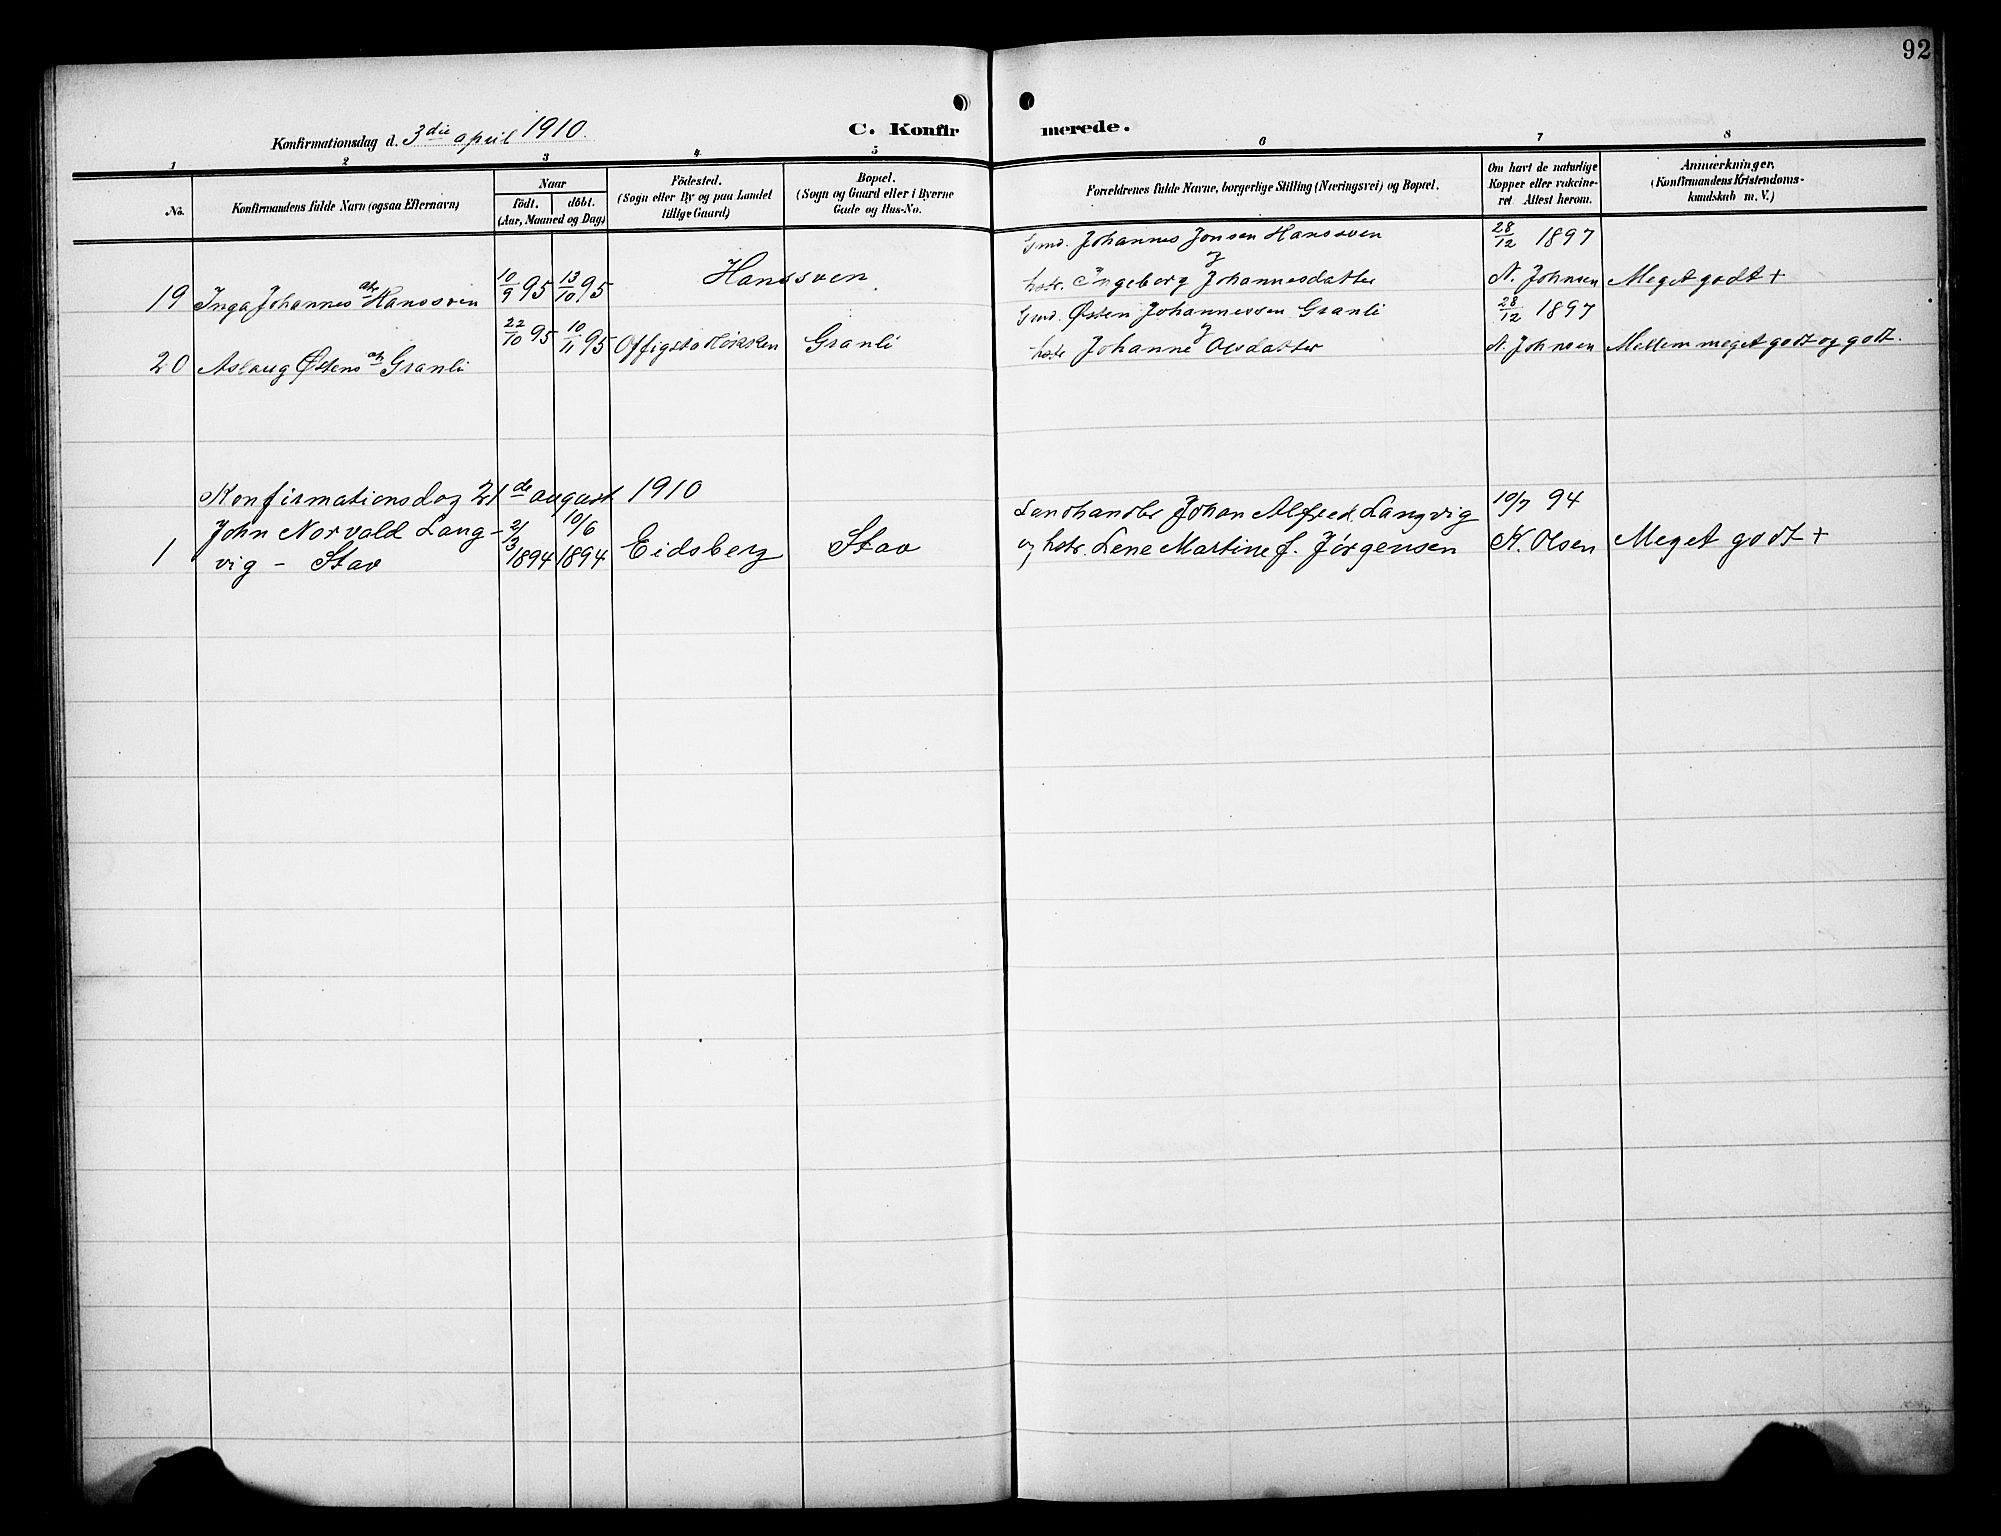 92
Konfirmationsdag d. 3die april 1910.
C. Konfirmerede.
1 2 3 4 5 6 7 8
No.
Konfirmandens fulde Navn (ogsaa Efternavn)
Naar
födt. döbt.
(Aar, Maaned og Dag)
Födested.
(Sogn eller By og paa Landet
tillige Gaard)
Bopæl.
(Sogn og Gaard eller i Byerne
Gade og Hus-No.
Forældrenes fulde Navne, borgerlige Stilling (Næringsvei) og Bopæl.
Om havt de naturlige
Kopper eller vakcine-
ret. Attest herom.
Anmærkninger.
(Konfirmandens Kristendoms-
kundskab m. V.)
Gmd. Johannes Jonsen Hanssven 28/12 1897
19 Inga Johannes dtr Hanssven 10/9 95 13/10 95 Hanssven og hstr. Ingeborg Johannesdatter N. Johnsen Meget godt +
Gmd. Østen Johannessen Granli 28/12 1897
20 Aslaug Østens dtr Granli 22/10 95 10/11 95 Granli og hstr Johanne Olsdatter N. Johnsen Mellem meget godt og godt.
Konfirmationsdag 21de august 1910
John Norvald Lang- 2/3 10/6 Landhandler Johan Alfred Langvig 10/7 94
1 vig - Stav 1894 1894 Eidsberg Stav og hstr. Lene Martine f. Jørgensen K. Olsen Meget godt +